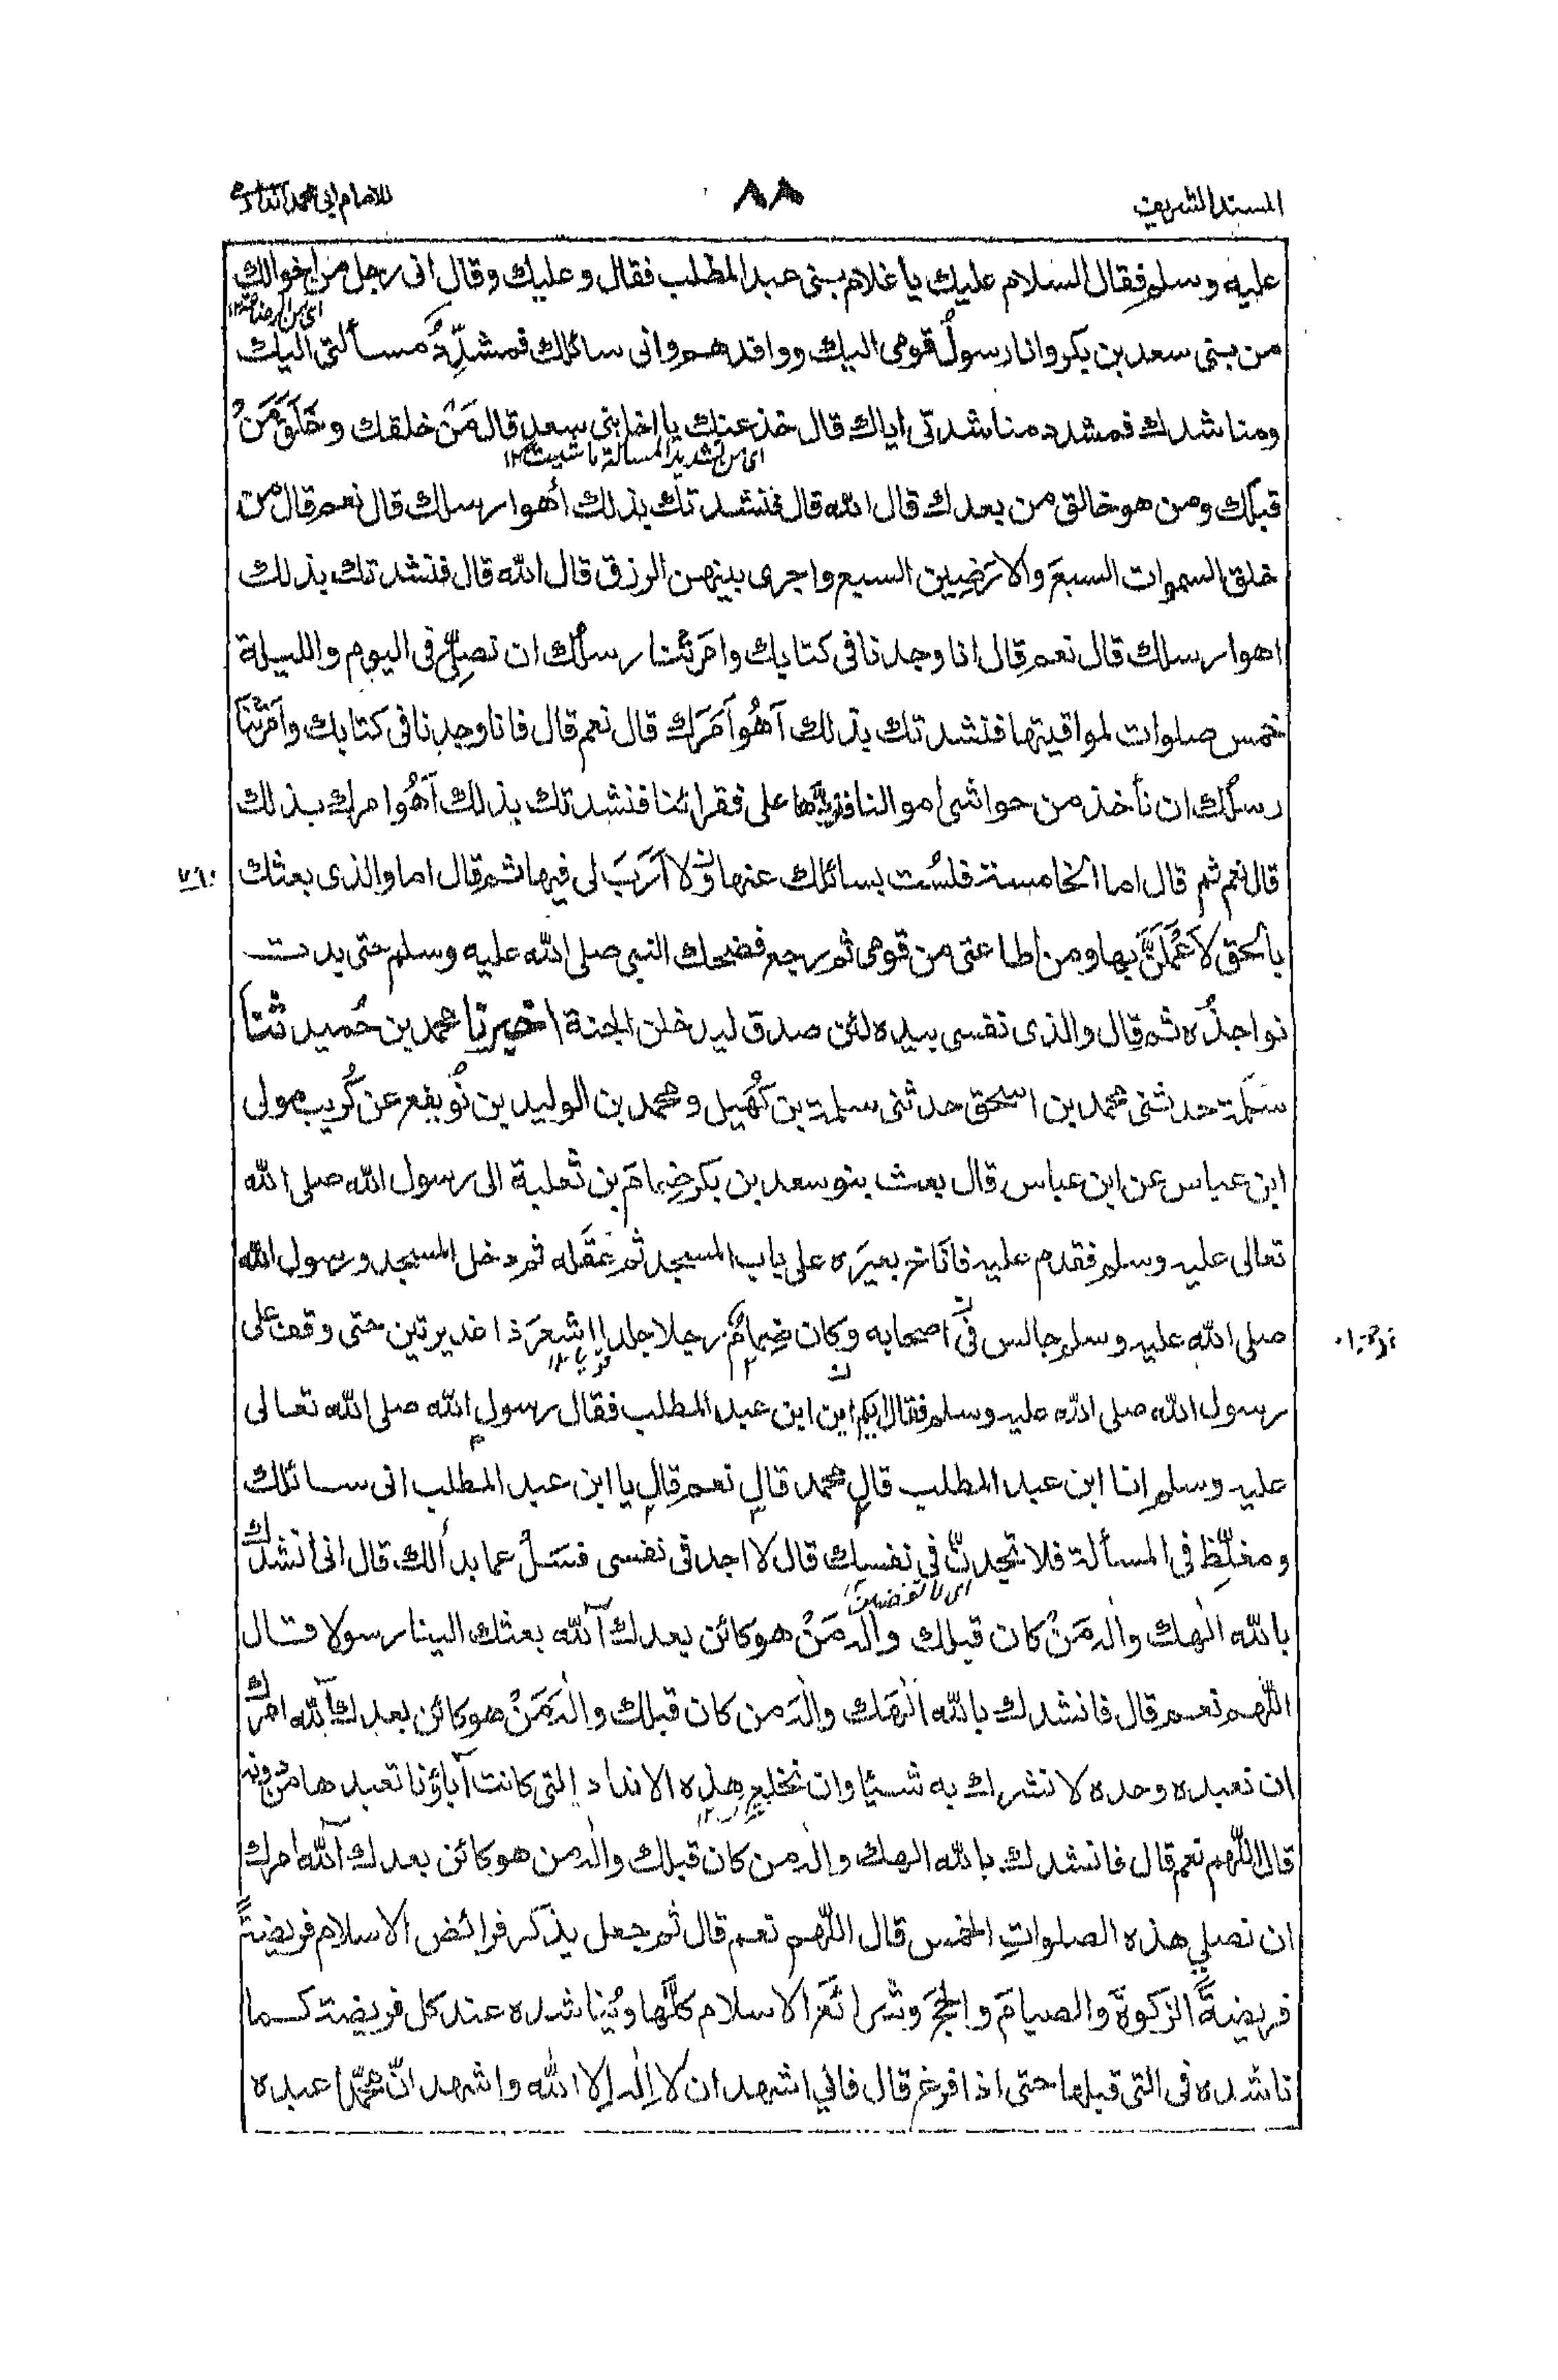 المسند الشريف ٨٨ للامام ابی محمد الدارمی
عليه وسلم فقال السلام عليك يا غلام بنی عبد المطلب فقال وعليك وقال انی رجل من اخوالك
ای من الرضاعة ١٢
من بنی سعد بن بكر وانا رسولُ قومی اليك ووافدهم وانی سائلك فمشدِّدٌ مسألتی اليك
ومناشدك فمشدد مناشدتی اياك قال خذ عنك يا اخا بنی سعد قال مَنْ خلقك وخَلَقَ مَنْ
ای من تشديد المسالة ما شيت ١٢
قبلك ومن هو خالق من بعدك قال الله قال فنشدتك بذلك أهو ارسلك قال نعم قال من
خلق السموات السبعَ والارَضِين السبع واجری بينهن الرزق قال الله قال فنشدتك بذلك
اهو ارسلك قال نعم قال انا وجدنا فی كتابك وامَرَتْنا رسلُك ان نصلِّیَ فی اليوم والليلة
خمس صلوات لمواقيتها فنشدتك بذلك آهُوَ اَمَرَك قال نعم قال فانا وجدنا فی كتابك وامَرَتْنَا
رسلك ان نأخذ من حواشی اموالنا فنردَّها علی فقرائنا فنشدتك بذلك آهُوَ امرك بذلك
قال نعم ثم قال اما الخامسة فلسْت بسائلك عنها ولا اَرَبَ لی فيها ثم قال اما والذی بعثك
بالحق لاَعْمَلَنَّ بها ومن اطاعنی من قومی ثم رجع فضحك النبی صلی الله عليه وسلم حتی بدت
نواجذُه ثم قال والذی نفسی بيده لئن صدق ليدخلن الجنة اخبرنا محمد بن حُميد ثنا
سَلَمة حدثنی محمد بن اسحق حدثنی سلمة بن كُهَيل ومحمد بن الوليد بن نُويفع عن كُريب مولی
ابن عباس عن ابن عباس قال بعث بنو سعد بن بكر ضِمامَ بن ثعلبة الی رسول الله صلی الله
تعالی عليه وسلم فقدم عليه فاَنَاخ بعيرَه علی باب المسجد ثم عَقَله ثم دخل المسجد ورسول الله
صلی الله عليه وسلم جالس فی اصحابه وكان ضِمامٌ رجلا جلدا اشعرَ ذا غديرتين حتی وقف علی
رسول الله صلی الله عليه وسلم فقال ايكم ابن عبد المطلب فقال رسول الله صلی الله تعالی
عليه وسلم انا ابن عبد المطلب قال محمد قال نعم قال يا ابن عبد المطلب انی سائلك
ومغلِّظ فی المسألة فلا تجدنّ فی نفسك قال لا اجد فی نفسی فسَلْ عما بدألك قال انی انشدك
بالله الٰهك واِلٰه مَنْ كان قبلك واِلٰه مَنْ هو كائن بعدك آلله بعثك الينا رسولا قال
اللّهم نعم قال فانشدك بالله الٰهك واِلٰه من كان قبلك واِلٰه مَنْ هو كائن بعدك آلله امرك
ان نعبده وحده لا نشرك به شيئا وان نخلع هذه الانداد التی كانت آباؤنا تعبدها من دونه
قال اللّهم نعم قال فانشدك بالله الهك واله من كان قبلك واله من هو كائن بعدك آلله امرك
ان نصلی هذه الصلواتِ الخمس قال اللّهم نعم قال ثم جعل يذكر فرائض الاسلام فريضةً
فريضةً الزكوةَ والصيامَ والحجَ وشرائعَ الاسلام كلَّها ويُناشده عند كل فريضة كما
ناشده فی التی قبلها حتی اذا فرغ قال فانی اشهد ان لا اِلٰه اِلا الله واشهد انّ محمّدا عبده